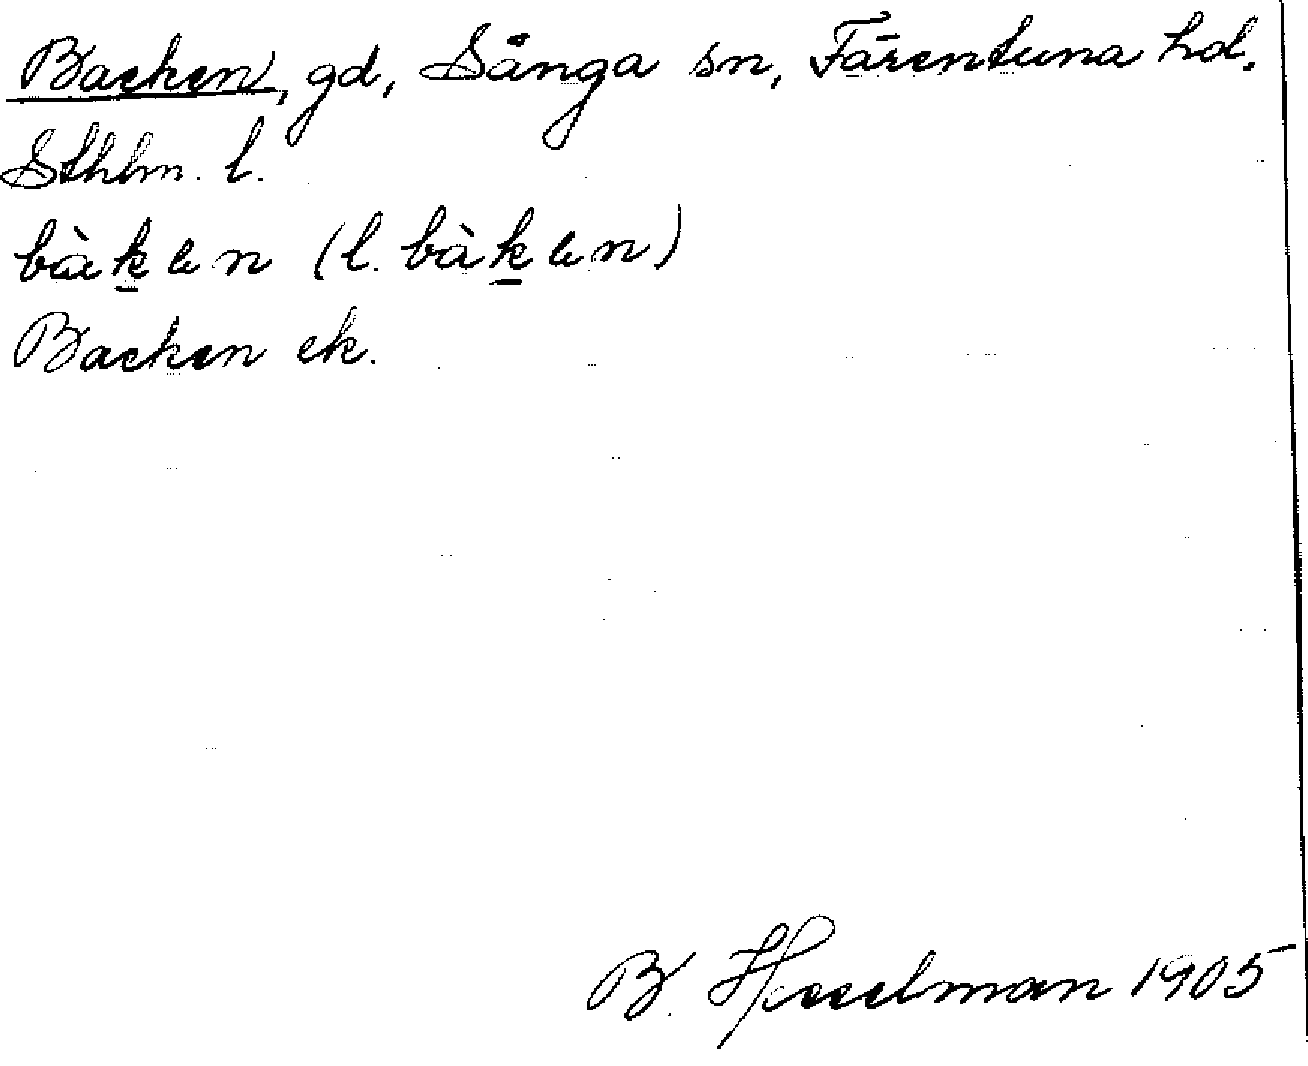 Backen, gd, Sånga sn, Färentuna hd.
Sthlm. l.
bàk̲en (l. bàk̲en)
Backen ek.
B. Hesselman 1905